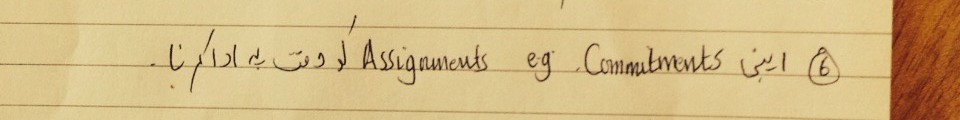 ⑥ اپنی Commitments eg. Assignments کو وقت پہ ادا کرنا۔